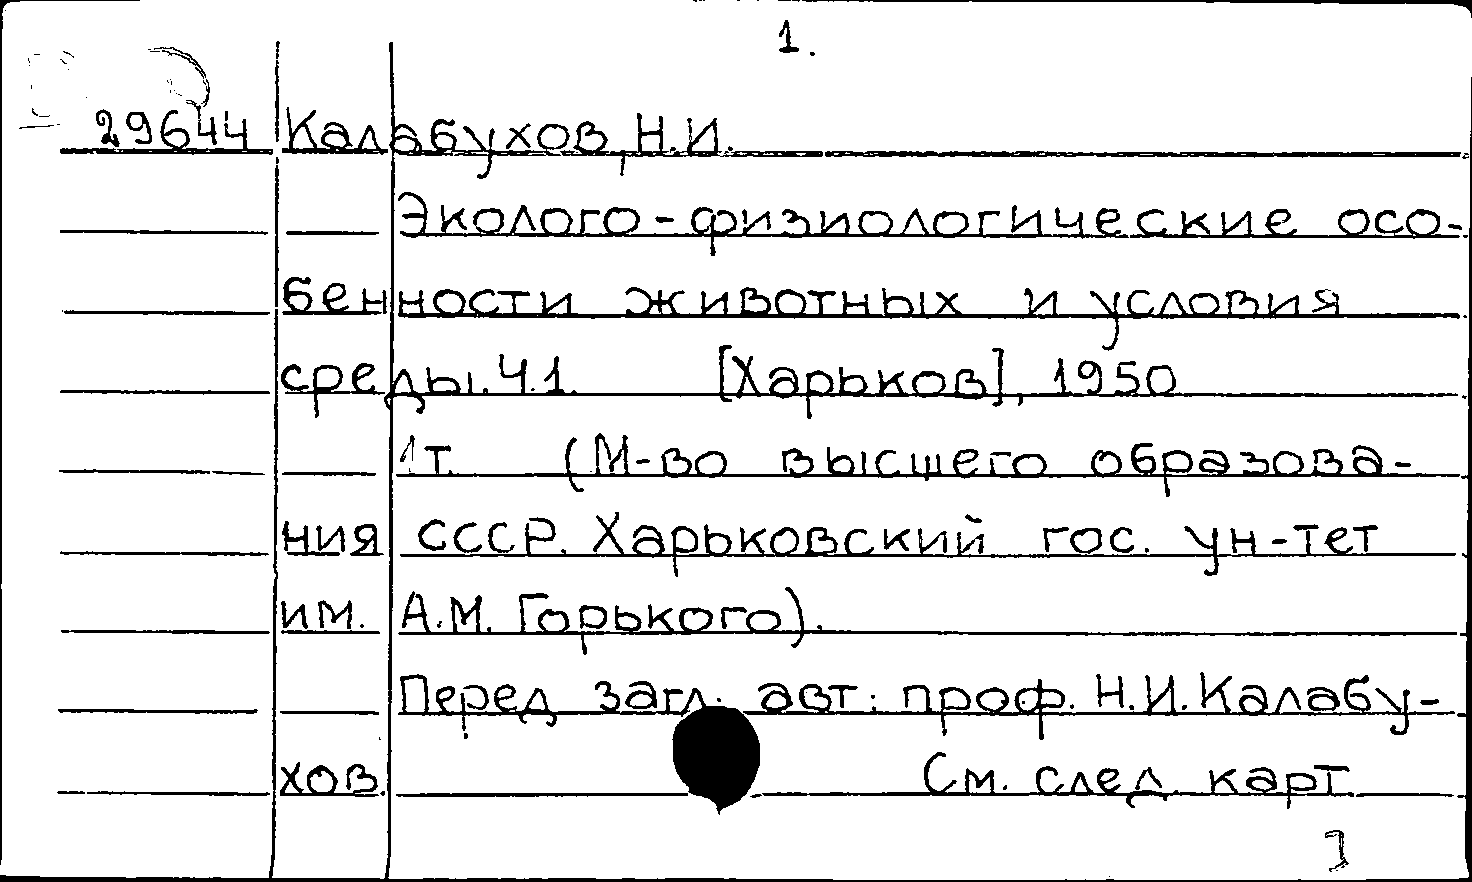 1.
29644 Калабухов, Н.И.
Эколого-физиологические осо-
бенности животных и условия
среды. Ч.1. [Харьков], 1950
1т. (М-во высшего образова-
ния СССР. Харьковский гос. ун-тет
им. А.М. Горького).
Перед загл. авт: проф. Н.И. Калабу-
хов. См. след. карт.